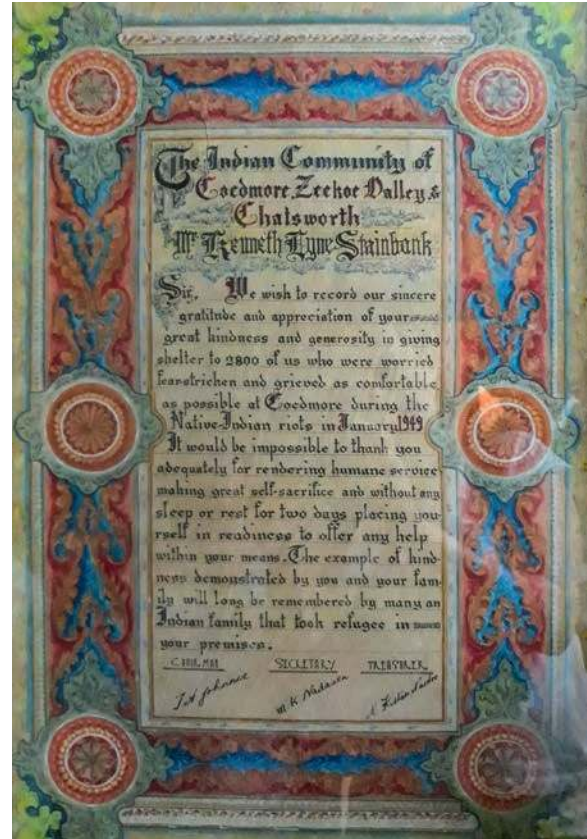 The Indian Community of
Coedmore, Zeekoe Valley &
Chatsworth
Mr Kenneth Lyne Stainbank
Sir, We wish to record our sincere
gratitude and appreciation of your
great kindness and generosity in giving
shelter to 2800 of us who were worried
fear-strichen and grieved as comfortable
as possible at Coedmore during the
Native-Indian riots in January 1949
It would be impossible to thank you
adequately for rendering humane service
making great self-sacrifice and without any
sleep or rest for two days placing you-
rself in readiness to offer any help
within your means. The example of kind-
ness demonstrated by you and your fam-
ily will long be remembered by many an
Indian family that took refugee in
your premises.
CHAIRMAN SECRETARY TREASURER